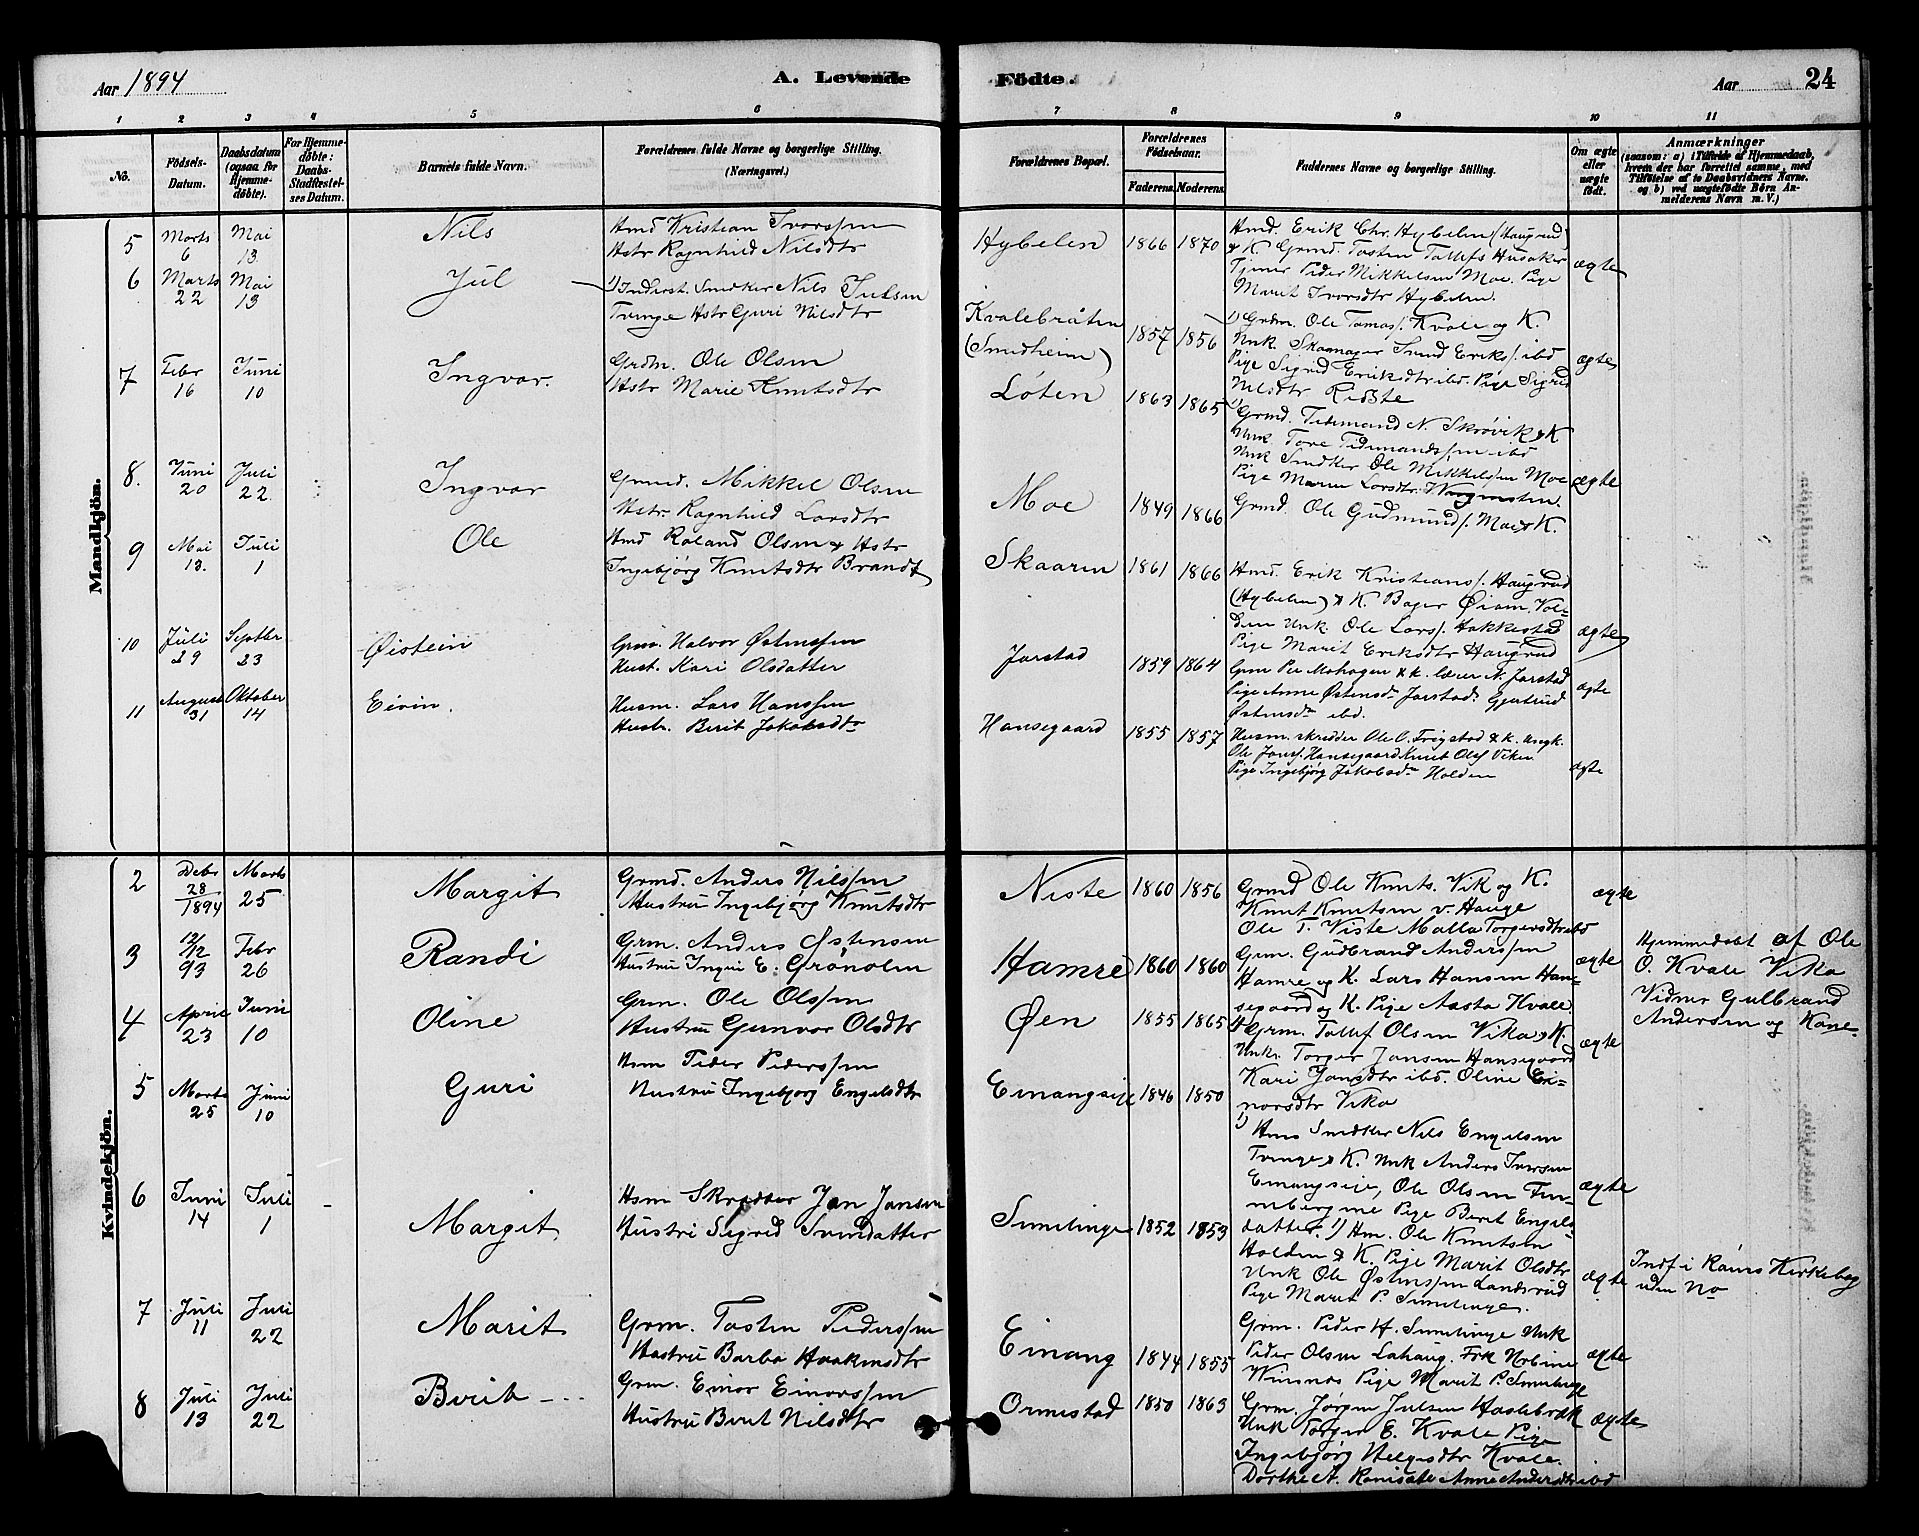 Aar 1894
A. Levende
Födte.
Aar
24
1 2 3 4 5 6 7 8 9 10 11
No.
Födsels-Datum.
Daabsdatum (ogsaa for Hjemme-döbte).
For Hjemme-döbte: Daabs-Stadfæstel-ses Datum.
Barnets fulde Navn.
Forældrenes fulde Navne og borgerlige Stilling.
(Næringsvei.)
Forældrenes Bopæl.
Forældrenes Födselsaar.
Faderens. Moderens.
Faddernes Navne og borgerlige Stilling.
Om ægte eller uægte födt.
Anmærkninger
(saasom: a) i Tilfælde af Hjemmedaab, hvem der har forrettet samme, med Tilföielse af to Daabsvidners Navne, og b) ved uægtefödte Börn An-melderens Navn m. V.)
Mandkjön.
5 Marts 6 Mai 13 Nils
Hmd Kristian Ivorssen
Hstr Ragnhild Nilsdtr
Hybelen 1866 1870
Hmd. Erik Chr. Hybelen (Haugrud)
& K. Grmd. Tosten Tollefs Husaker
Tjener Peder Mikkelsen Moe. Pige
Marit Ivorsdtr Hybelen.
ægte
6 Marts 22 Mai 13 Jul
1) Inderst. Snedker Nils Julsen
Tvinge Hstr Guri Nilsdtr
Kvalebråten
(Smedheim) 1857 1856
1) Grdm. Ole Tomas/. Kvale og K.
Unk. Skomager Svend Eriks/. ibd
Pige Sigrid Eriksdtr ibd. Pige Sigrid
Nilsdtr Ridste
ægte
7 Febr 16 Juni 10 Ingvar.
Grdm. Ole Olsen
Hstr Marie Knutsdtr
Løten 1863 1865
1) Grmd. Tidemand N. Skrøvik & K
Unk. Tore Tidemandssen ibd
Unk Snedker Ole Mikkelsen Moe
Pige Maren Larsdtr.
ægte
8. Juni 20 Juli 22 Ingvar
Grmd. Mikkel Olsen
Hstr. Ragnhild Larsdtr
Moe 1849 1866
Grmd. Ole Gudmund/. Moe & K.
9 Mai 13. Juli 1 Ole
Hmd Roland Olsen & Hstr
Ingebjørg Knutsdtr Brandt
Skaaren 1861 1866
Hmd. Erik Kristians/. Haugrud
(Hybelen) & K. Bager Øiom. Vol-
den Unk. Ole Lars/. Hakkestad
Pige Marit Eriksdtr Haugrud
ægte
10 Juli 29 Septbr 23 Øistein
Grm. Halvor Østenssen
Hust. Kari Olsdatter
Jarstad 1859 1864
Grm Per Mohagen & k. lærer N. Jarstad
Pige Anne Østensd. Jarstad. Gjertrud
Østensd. ibd.
ægte
11 August 31 Oktober 14 Eivin.
Husm. Lars Hanssen
Hustr. Berit Jakobsdtr
Hansegaard 1855 1857
Husm. skrædder Ole O. Frigstad & k. Ungk.
Ole Jons/. Hansegaard Knut Ols/ Viken
Pige Ingebjørg Jakobsd. Holden
ægte
Kvindekjön.
2 Debr 28/1894 Marts 25 Margit
Grmd. Anders Nilssen
Hustru Ingebjørg Knutsdtr
Niste 1860 1856
Grmd Ole Knuts. Vik og K.
Knut Knutsen v. Hauge
Ole T. Viste Malla Torgersdtr ibd
ægte
3 12/12 93 Febr 26 Randi
Grm. Anders Østensen
Hustru Ingri E. Grønolen
Hamre 1860 1860
Grm. Gudbrand Anderssen
Hamre og K. Lars Hansen Han-
segaard og K. Pige Aasta Hvale.
ægte
Hjemmedøbt af Ole
O. Kvale Vika
Vidner Gulbrand
Andersen og Kone
4 April 23 Juni 10 Oline
Grm. Ole Olssen
Hustru Gunvor Olsdtr
Øen 1855 1865
1) Grm. Tollef Olsen Vika & K.
Unk. Torger Jansen Hansegaard
Kari Jansdtr ibd. Oline Ei-
norsdtr Vika
ægte
5 Marts 25 Juni 10 Guri
Hsm Peder Pederssen
Hustru Ingebjørg Engelsdtr
Einangseie 1846 1850
1) Hmd Snedker Nils Engelsen
Tvinge & K. Unk Anders Iversen
Einangseie, Ole Olsen Fin-
nebergene Pige Berit Engels-
datter.
ægte
6 Juni 14 Juli 1 Margit
Hsm Skrædder Jan Jansen
Hustru Sigrid Svendatter
Semelinge 1852 1853
1) Hm. Ole Knutsen
Holden & K. Pige Marit Olsdtr
Unk Ole Østenssen Landsrud
Pige Marit P. Semelinge.
ægte
Indf i Røns Kirkebog
uden No
7 Juli 11 Juli 22 Marit
Grm. Tosten Pederssen
Hustru Barbo Haakensdtr
Einang 1844 1855
Grm. Peder H. Semelinge Unk
Peder Olsen Lahaug. Frk Nobine
Winsnes Pige Marit P. Semelinge
ægte
8 Juli 13 Juli 22 Berit
Grm. Einar Einarssen
Hustru Berit Nilsdtr
Ormestad 1850 1863
Grm. Jørgen Julsen Haslebrek
Unk Torger E. Kvale Pige
Ingebjørg Helgesdtr Kvale.
Dorthe A. Anne Andersdtr ibd
ægte